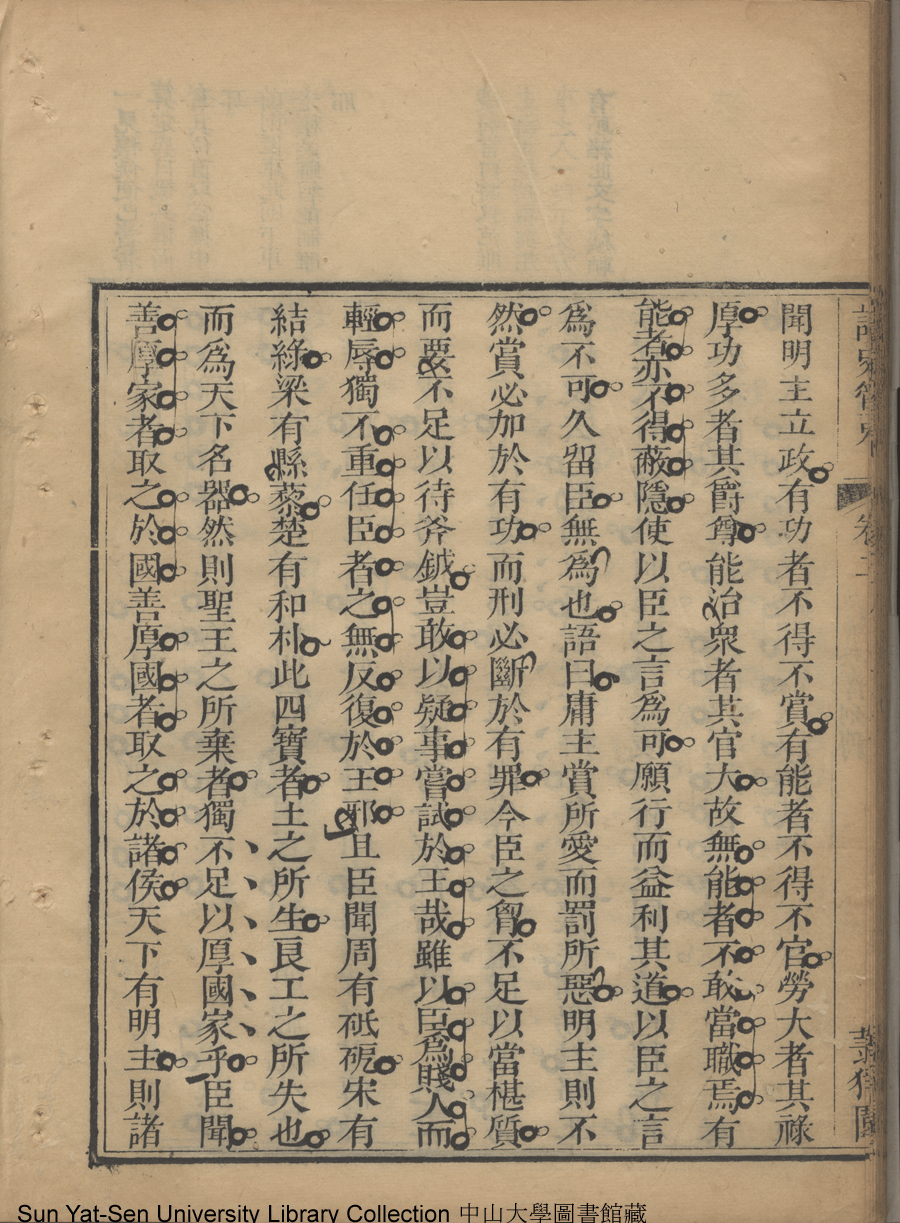 聞明主立政有功者不得不賞有能者不得不官勞大者其祿
厚功多者其爵尊能治衆者其官大故無能者不敢當職焉有
能者亦不得蔽隱使以臣之言爲可願行而益利其道以臣之言
爲不可久留臣無爲也語曰庸主賞所愛而罰所惡明主則不
然賞必加於有功而刑必斷於有罪今臣之胷不足以當椹質
而要不足以待斧鉞豈敢以疑事嘗試於王哉雖以臣爲賤人而
輕辱獨不重任臣者之無反復於王邪且臣聞周有砥砨宋有
結綠梁有縣藜楚有和朴此四寶者土之所生良工之所失也
而爲天下名器然則聖王之所棄者獨不足以厚國家乎臣聞
善厚家者取之於國善厚國者取之於諸侯天下有明主則諸
Sun Yat-Sen University Library Collection 中山大學圖書館藏